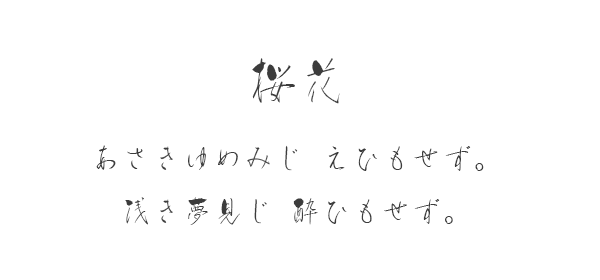 桜花
あさきゆめみじ えひもせず。
浅き夢見じ 酔ひもせず。